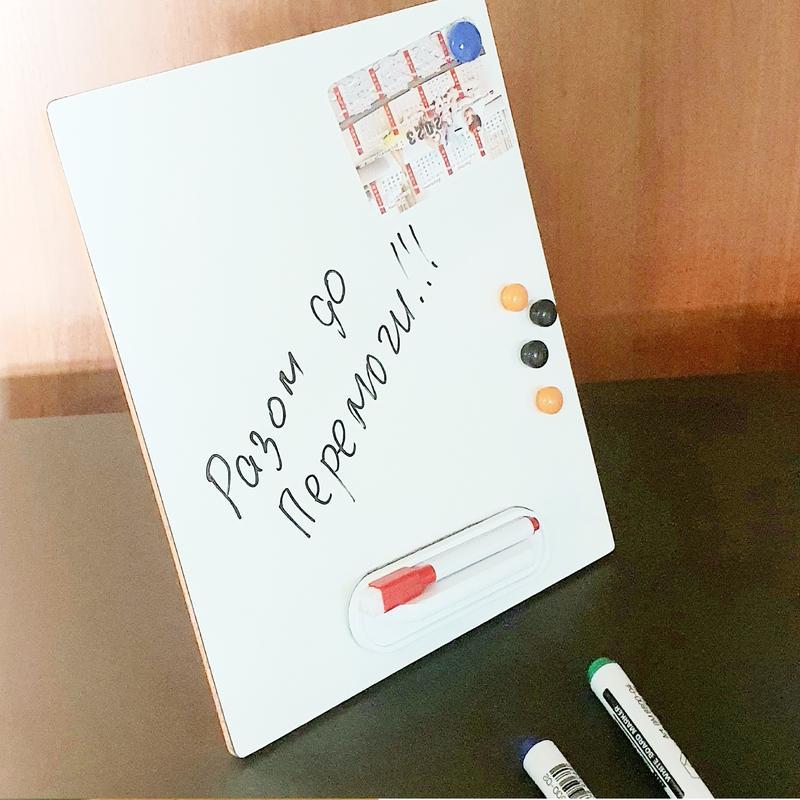 2023
Разом до
Перемоги!!!
WHITE BOARD MARKER